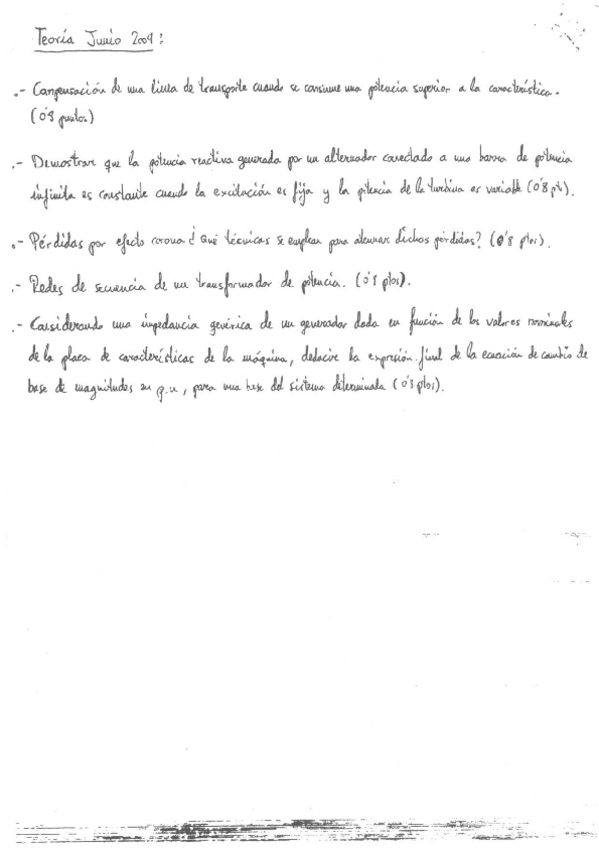 Teoría Junio 2009:
.- Compensación de una línea de transporte cuando se consume una potencia superior a la característica.
(0'8 puntos)
.- Demostrar que la potencia reactiva generada por un alternador conectado a una barra de potencia
infinita es constante cuando la excitación es fija y la potencia de la turbina es variable (0'8 pts).
.- Pérdidas por efecto corona ¿ Qué técnicas se emplean para dichas pérdidas? (0'8 ptos).
.- Redes de secuencia de un transformador de potencia. (0'8 ptos).
.- Considerando una impedancia genérica de un generador dada en función de los valores nominales
de la placa de características de la máquina, deducir la expresión final de la ecuación de cambio de
base de magnitudes en p.u, para una base del sistema determinada (0'8 ptos).